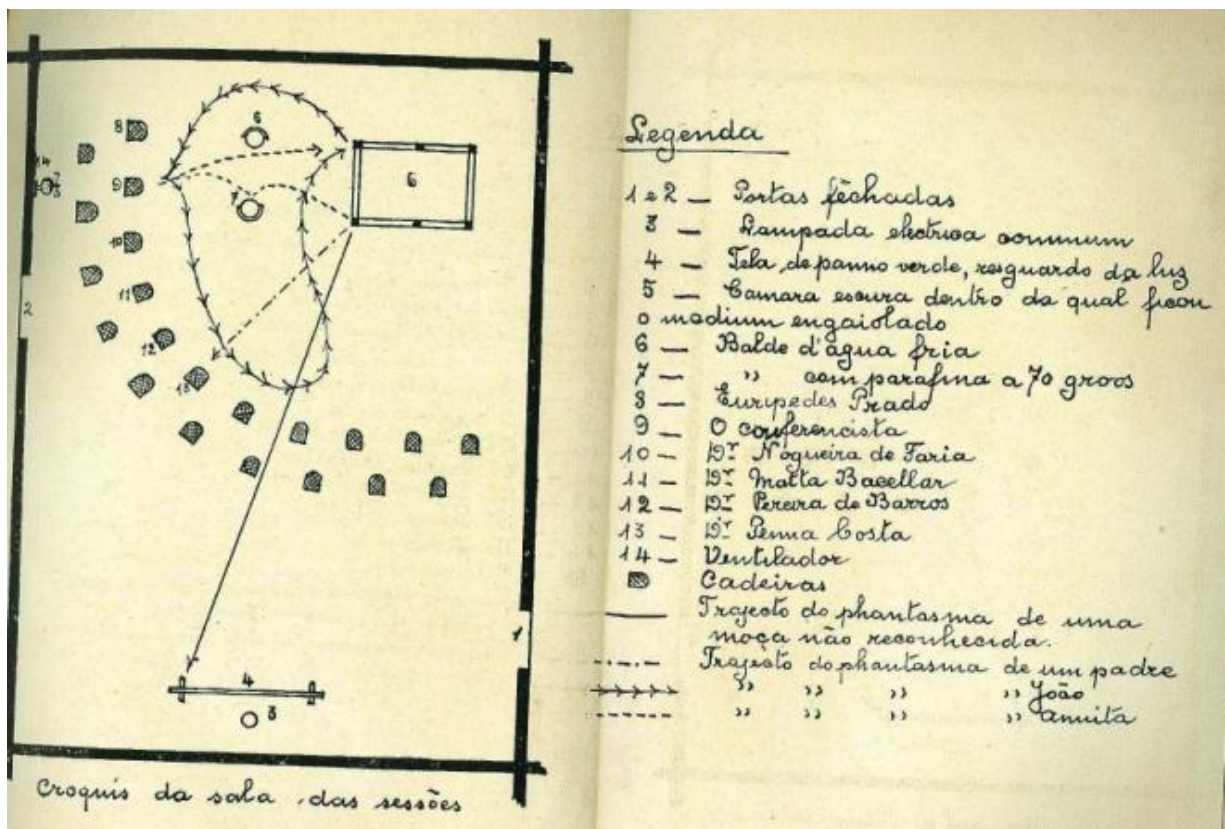 6
8
14
9
6
7
10
11
2
12
13
1
4
3
Croquis da sala das sessões
Legenda
1 e 2 — Portas fêchadas
3 — Lampada electrica commum
4 — Tela de panno verde, resguardo da luz
5 — Camara escura dentro da qual ficou
o medium engaiolado
6 — Balde d'agua fria
7 — " com parafina a 70 graos
8 — Euripedes Prado
9 — O conferencista
10 — Dr. Nogueira de Faria
11 — Dr. Matta Bacellar
12 — Dr. Pereira de Barros
13 — Dr. Penna Costa
14 — Ventilador
Cadeiras
Trajecto do phantasma de uma
moça não reconhecida.
Trajecto do phantasma de um padre
" " " " João
" " " " annita